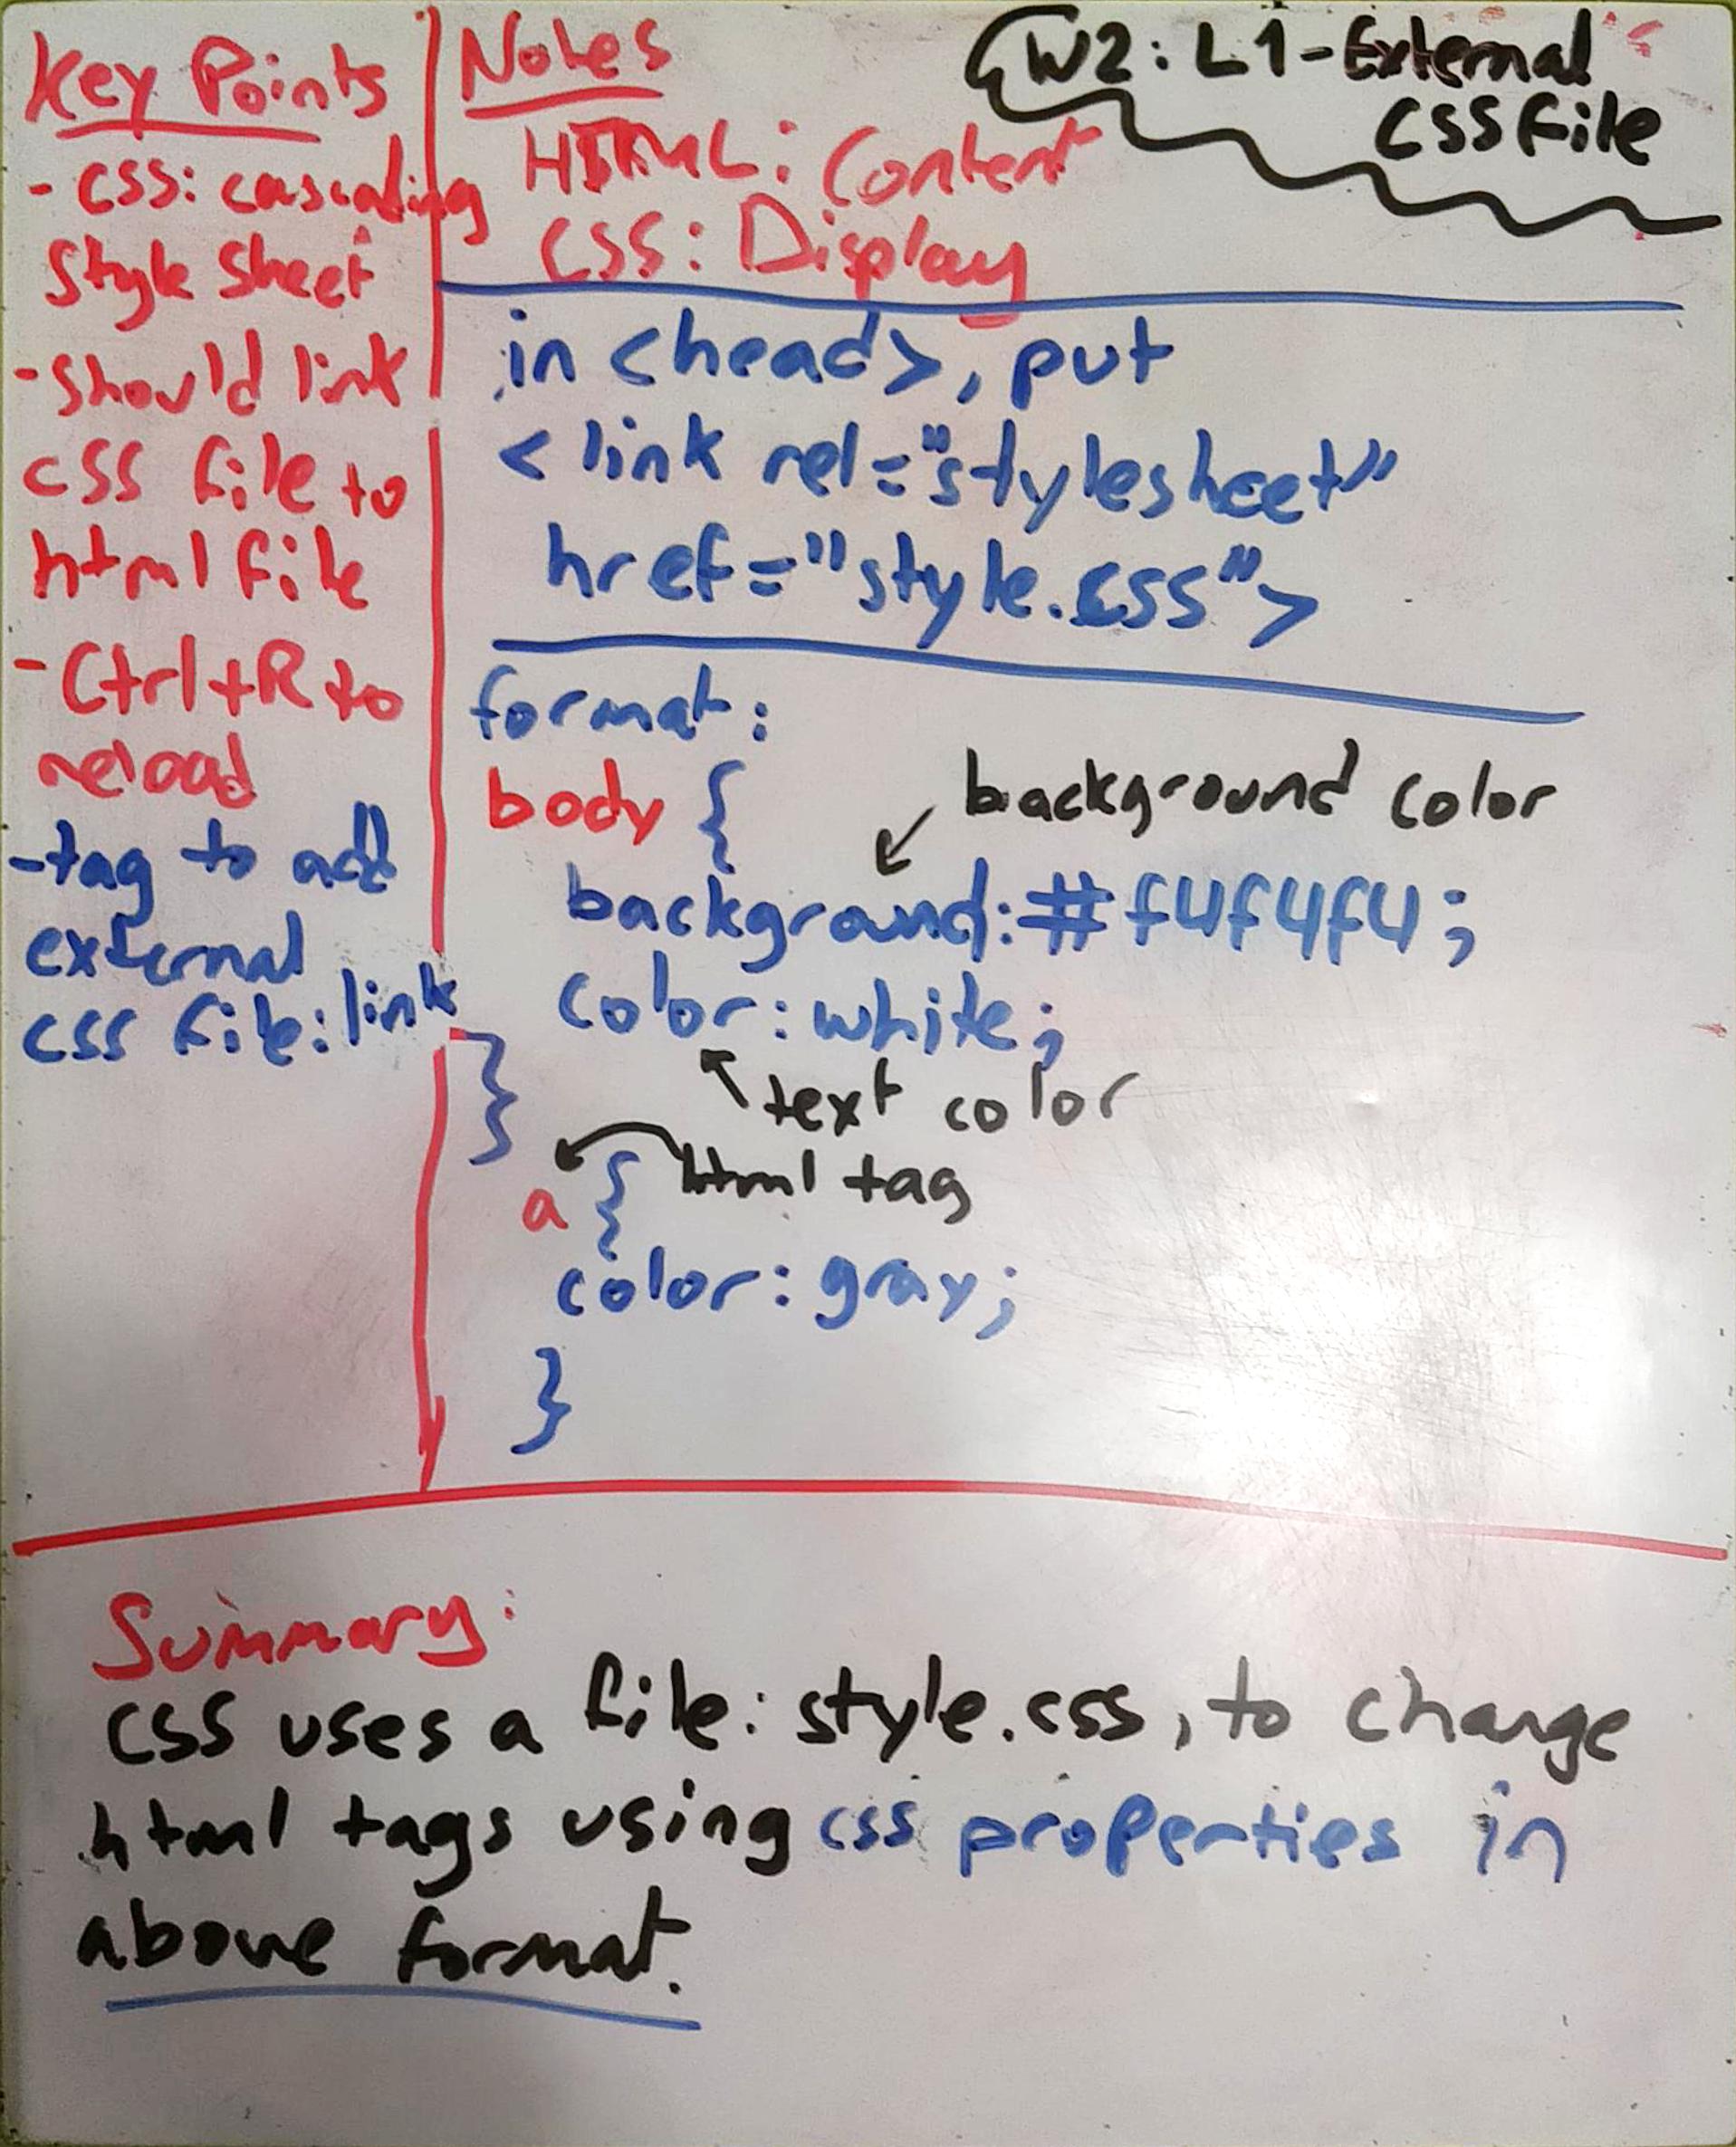 W2: L1-External
CSS file
Key Points
- CSS: cascading
Style Sheet
- Should link
css file to
html file
- Ctrl+R to
reload
- tag to add
external
css file: link
Notes
HTML: Content
CSS: Display
in <head>, put
<link rel="stylesheet"
href="style.css">
format:
body {
background color
background: #f4f4f4;
color: white;
text color
}
html tag
a {
color: gray;
}
Summary:
CSS uses a file: style.css, to change
html tags using css properties in
above format.